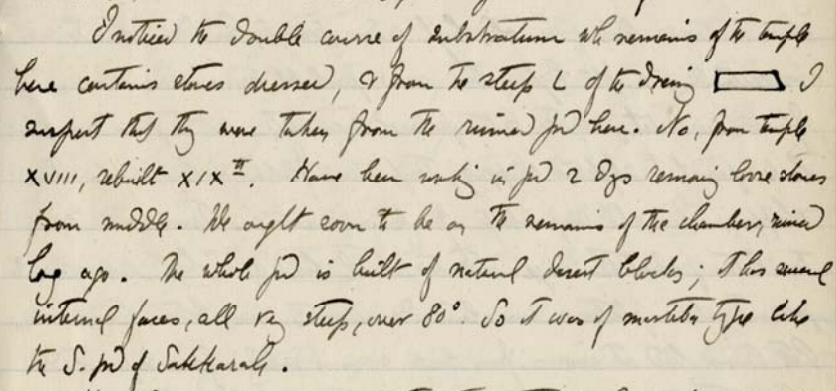 I noticed the double course of substratum wh remains of the temple
here contains stones dressed, & from the steep L of the dressing I
suspect that they were taken from the ruined pyd here. No, from temple
XVIII, rebuilt XIXth. Have been working in pyd 2 dys removing loose stones
from middle. We ought soon to be on the remains of the chamber, ruined
long ago. The whole pyd is built of natural desert blocks; it has several
internal faces, all very steep, over 80°. So it was of mastaba type like
the S. pyd of Sakkarah.